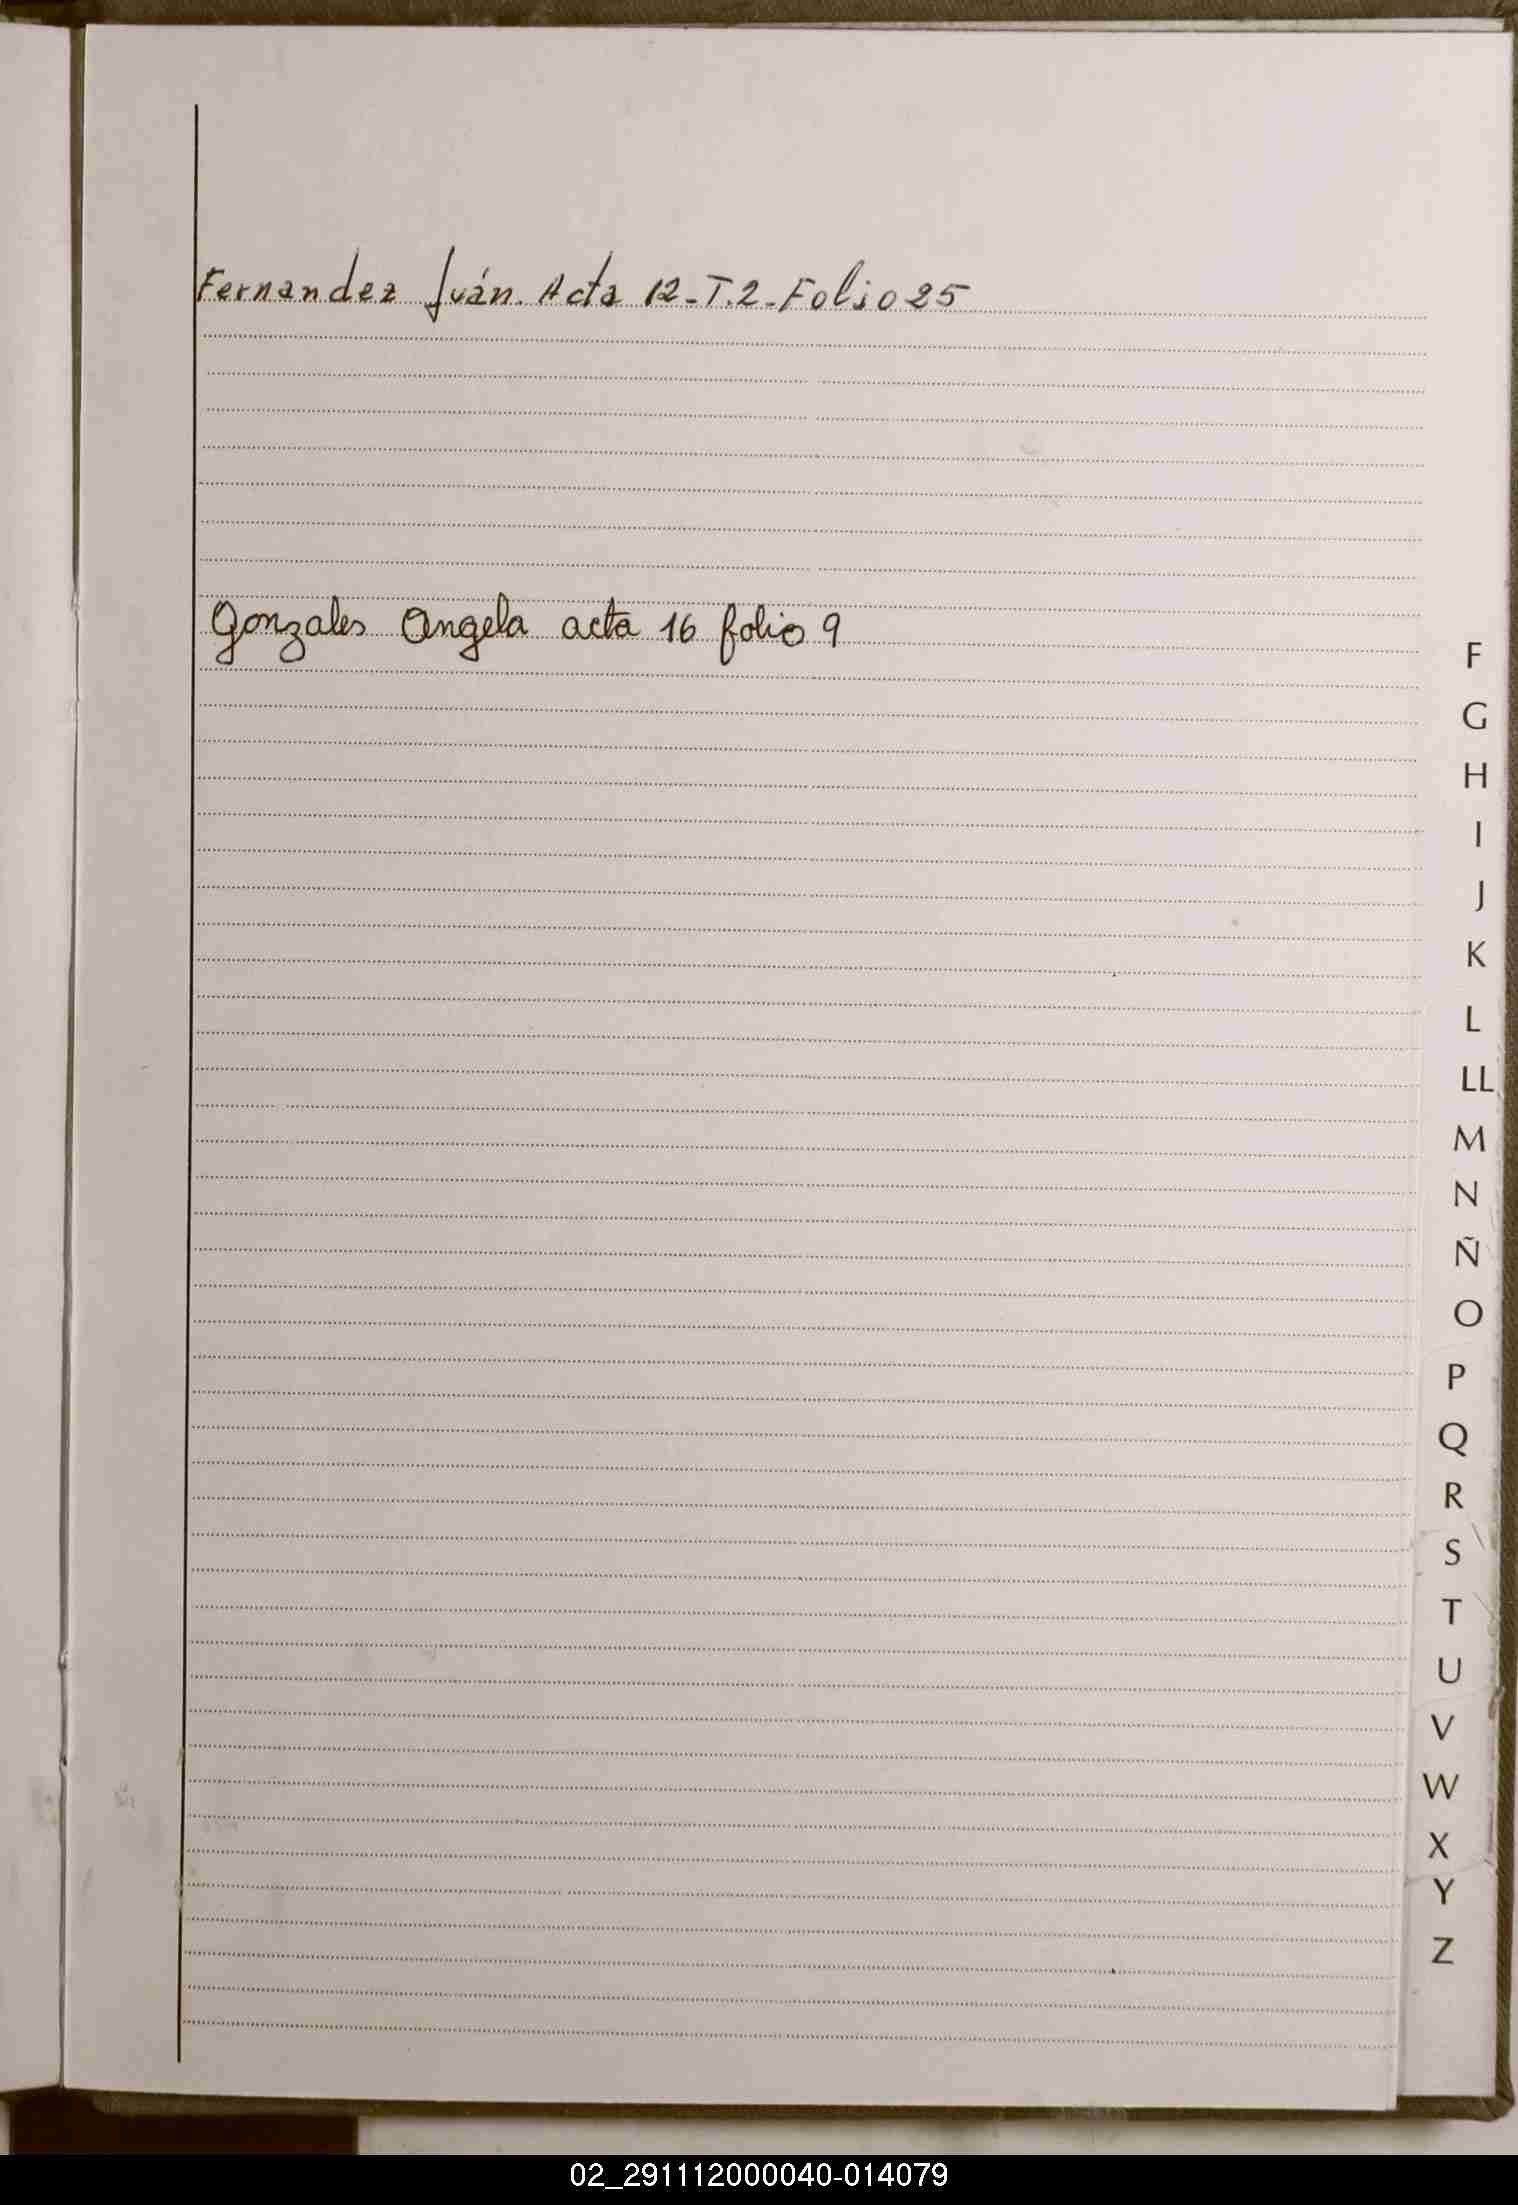 Fernandez Iván. Acta 12-T.2-Folio 25
Gonzales Angela acta 16 folio 9
F
G
H
I
J
K
L
LL
M
N
Ñ
O
P
Q
R
S
T
U
V
W
X
Y
Z
02_291112000040-014079